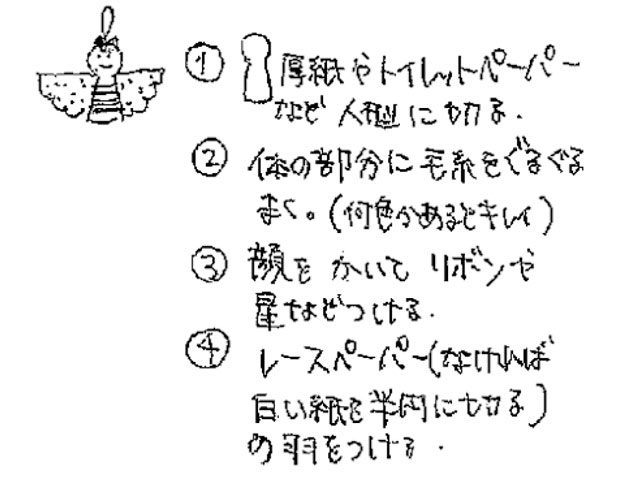 ① 厚紙やトイレットペーパー
など人型に切る.
② 体の部分に毛糸をぐるぐる
まく。(何色かあるとキレイ)
③ 顔をかいてリボンや
星などつける.
④ レースペーパー(なければ
白い紙を半円に切る)
の羽をつける.